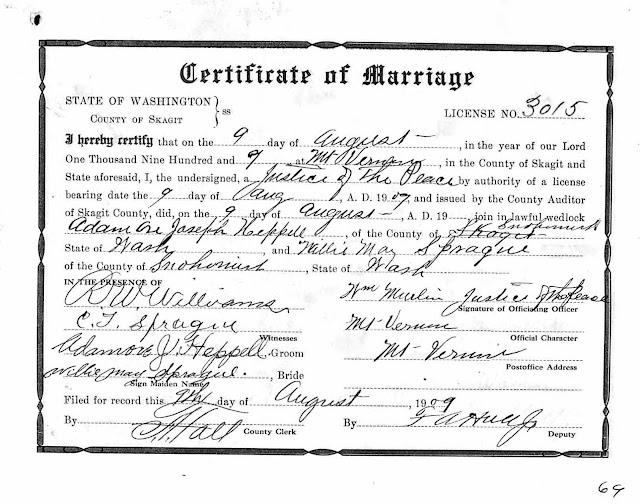 Certificate of Marriage
STATE OF WASHINGTON } ss
COUNTY OF SKAGIT
LICENSE NO. 3015
I hereby certify that on the 9 day of August, in the year of our Lord
One Thousand Nine Hundred and 9 at Mt Vernon, in the County of Skagit and
State aforesaid, I, the undersigned, a Justice of The Peace by authority of a license
bearing date the 9 day of Aug, A. D. 1909, and issued by the County Auditor
of Skagit County, did, on the 9 day of August, A. D. 19 join in lawful wedlock
Snohomish
Adamore Joseph Heppell, of the County of Skagit
State of Wash, and Willie May Sprague
of the County of Snohomish, State of Wash
IN THE PRESENCE OF
R. W. Williams
Wm Justice of the Peace
Signature of Officiating Officer
C. T. Sprague
Witnesses
Mt Vernon
Official Character
Adamore J. Heppell. Groom
Mt Vernon
Postoffice Address
Willie May Sprague., Bride
Sign Maiden Name
Filed for record this 9th day of August, 1909
By
County Clerk
By
Deputy
69